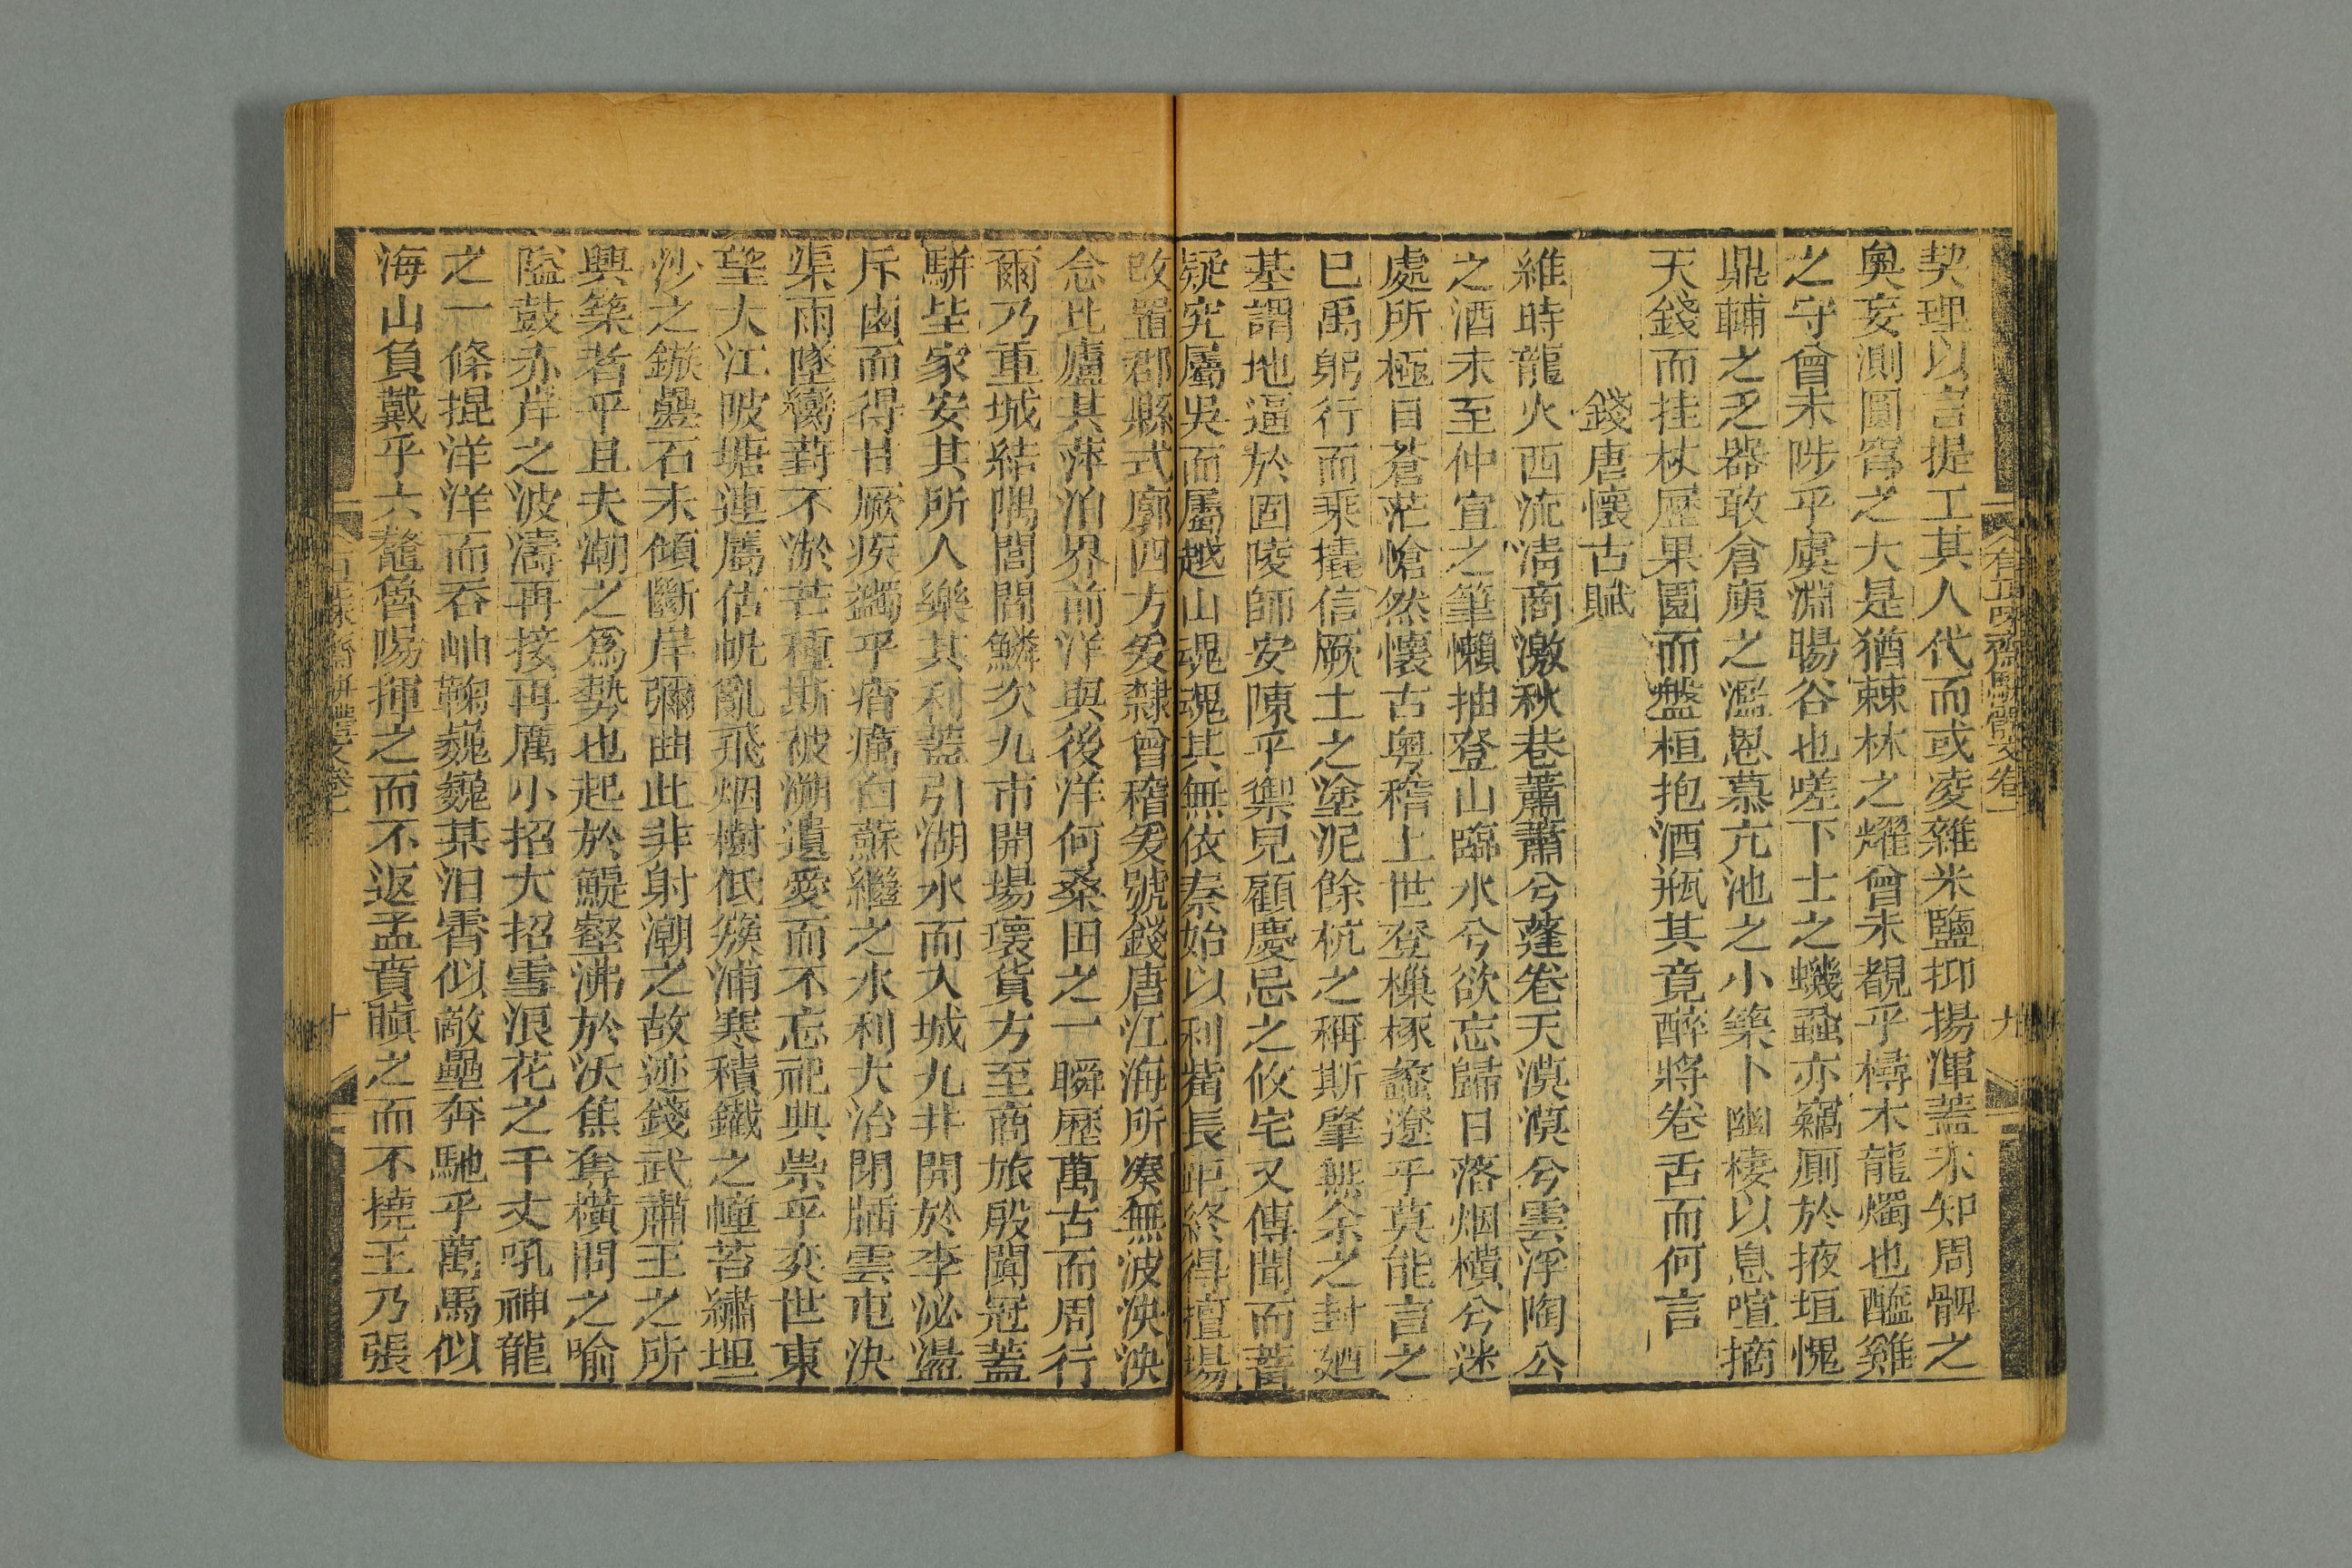 有正味齋駢體文卷一
九
契理以言提工其人代而或凌雜米鹽抑揚渾蓋未知周髀之
奧妄測圜穹之大是猶棘林之燿曾未覩乎橦木龍燭也醯雞
之守曾未陟乎虞淵暘谷也嗟下士之蟣蝨亦竊厠於掖垣愧
鼎輔之乏器敢倉庾之濫恩慕亢池之小築卜幽棲以息喧摘
天錢而挂杖歷果園而盤桓抱酒瓶其竟醉將卷舌而何言
錢唐懷古賦
維時龍火西流淸商激秋巷蕭蕭兮蓬卷天漠漠兮雲浮陶公
之酒未至仲宣之筆懶抽登山臨水兮欲忘歸日落烟橫兮迷
處所極目蒼茫愴然懷古粵稽上世登樔椓蠡遼乎莫能言之
已禹躬行而乘撬信厥土之塗泥餘杭之稱斯肇無余之封廼
基謂地逼於固陵師安陳乎禦兒顧慶忌之攸宅又傳聞而蓄
疑究屬吳而屬越山魂魂其無依秦始以利觜長距終得擅場
改置郡縣式廓四方爰隸會稽爰號錢唐江海所湊無波泱泱
念此廬其萍泊界前洋與後洋何桑田之一瞬歷萬古而周行
爾乃重城結隅閭閻鱗次九市開場瓌貨方至商旅殷闐冠蓋
駢坒家安其所人樂其利蓋引湖水而入城九井開於李泌盪
斥鹵而得甘厥疾蠲乎瘠癘白蘇繼之水利大治閉牐雲屯決
渠雨墜灣葑不淤芒種斯被溯遺愛而不忘祀典崇乎奕世東
望大江陂塘連屬估帆亂飛烟樹低簇浦寒積鐵之幢苔繡坦
沙之鏃疊石未傾斷岸彌曲此非射潮之故迹錢武肅王之所
興築者乎且夫潮之爲勢也起於鯷壑沸於沃焦奪橫門之喻
隘鼓赤岸之波濤再接再厲小招大招雪浪花之千丈吼神龍
之一條掍洋洋而吞岫鞠巍巍某汨霫似敵壘奔馳乎萬馬似
海山負戴乎六鼇魯陽揮之而不返孟賁瞋之而不撓王乃張
十